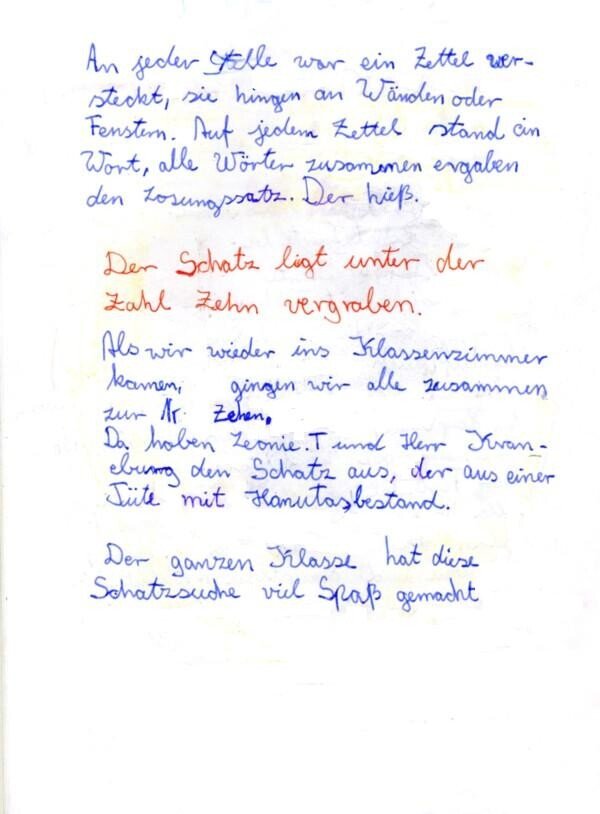 An jeder Stelle war ein Zettel ver-
steckt, sie hingen an Wänden oder
Fenstern. Auf jedem Zettel stand ein
Wort, alle Wörter zusammen ergaben
den Losungssatz. Der hieß.
Der Schatz ligt unter der
Zahl Zehn vergraben.
Als wir wieder ins Klassenzimmer
kamen, gingen wir alle zusammen
zur Nr. Zehen.
Da hoben Leonie.T und Herr Kran-
eburg den Schatz aus, der aus einer
Tüte mit Hanutas bestand.
Der ganzen Klasse hat diese
Schatzsuche viel Spaß gemacht